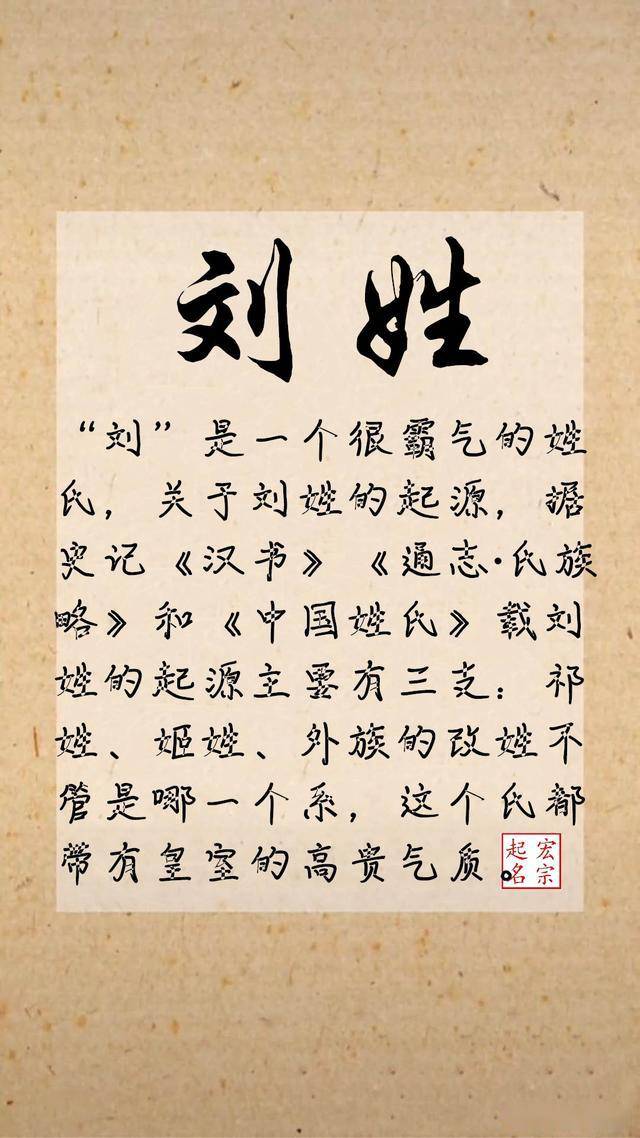 刘姓
“刘”是一个很霸气的姓
氏，关于刘姓的起源，据
史记《汉书》《通志·氏族
略》和《中国姓氏》载刘
姓的起源主要有三支：祁
姓、姬姓、外族的改姓不
管是哪一个系，这个氏都
带有皇室的高贵气质。
宏宗
起名